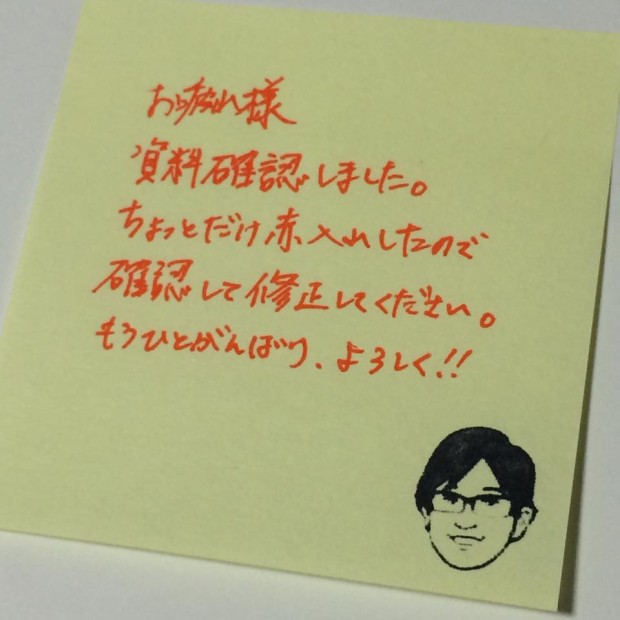 お疲れ様
資料確認しました。
ちょっとだけ赤入れしたので
確認して修正してください。
もうひとがんばり、よろしく!!